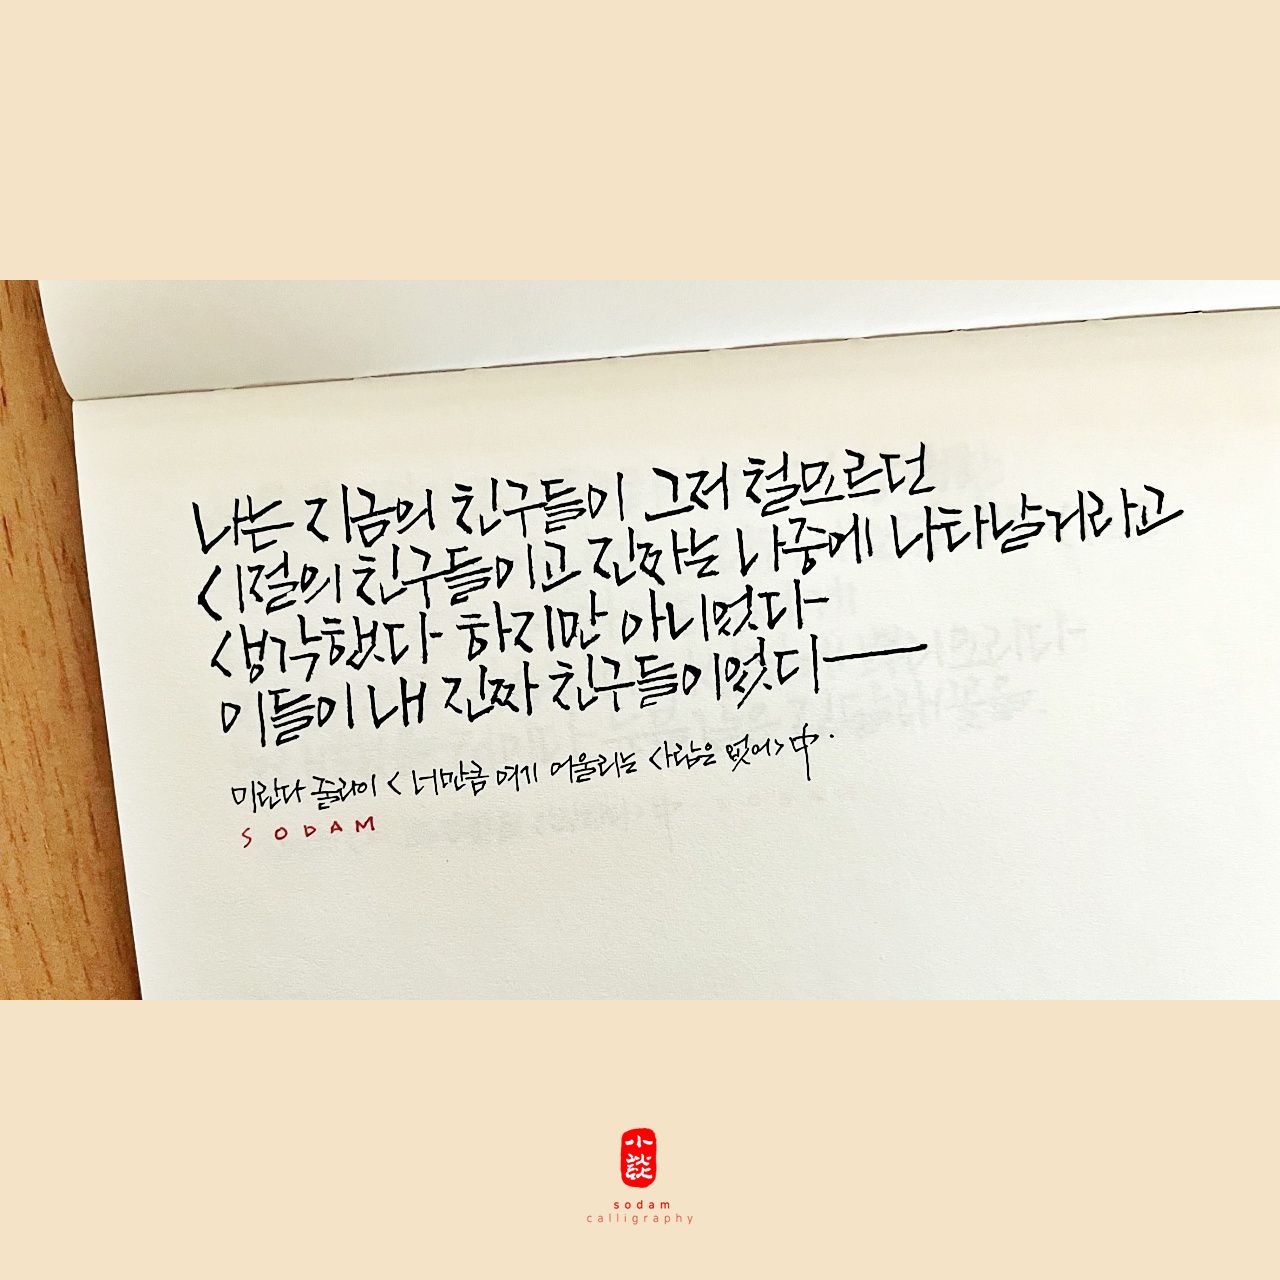 나는 지금의 친구들이 그저 철모르던
시절의 친구들이고 진짜는 나중에 나타날거라고
생각했다 하지만 아니었다
이들이 내 진짜 친구들이었다
미란다 줄라이 < 너만큼 여기 어울리는 사람은 없어> 中.
SODAM
小談
sodam
calligraphy